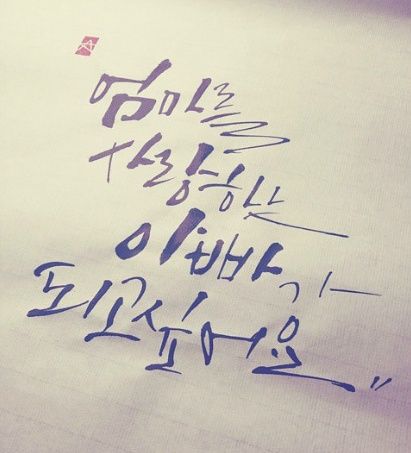 엄마를
사랑하는
아빠가
되고싶어요"